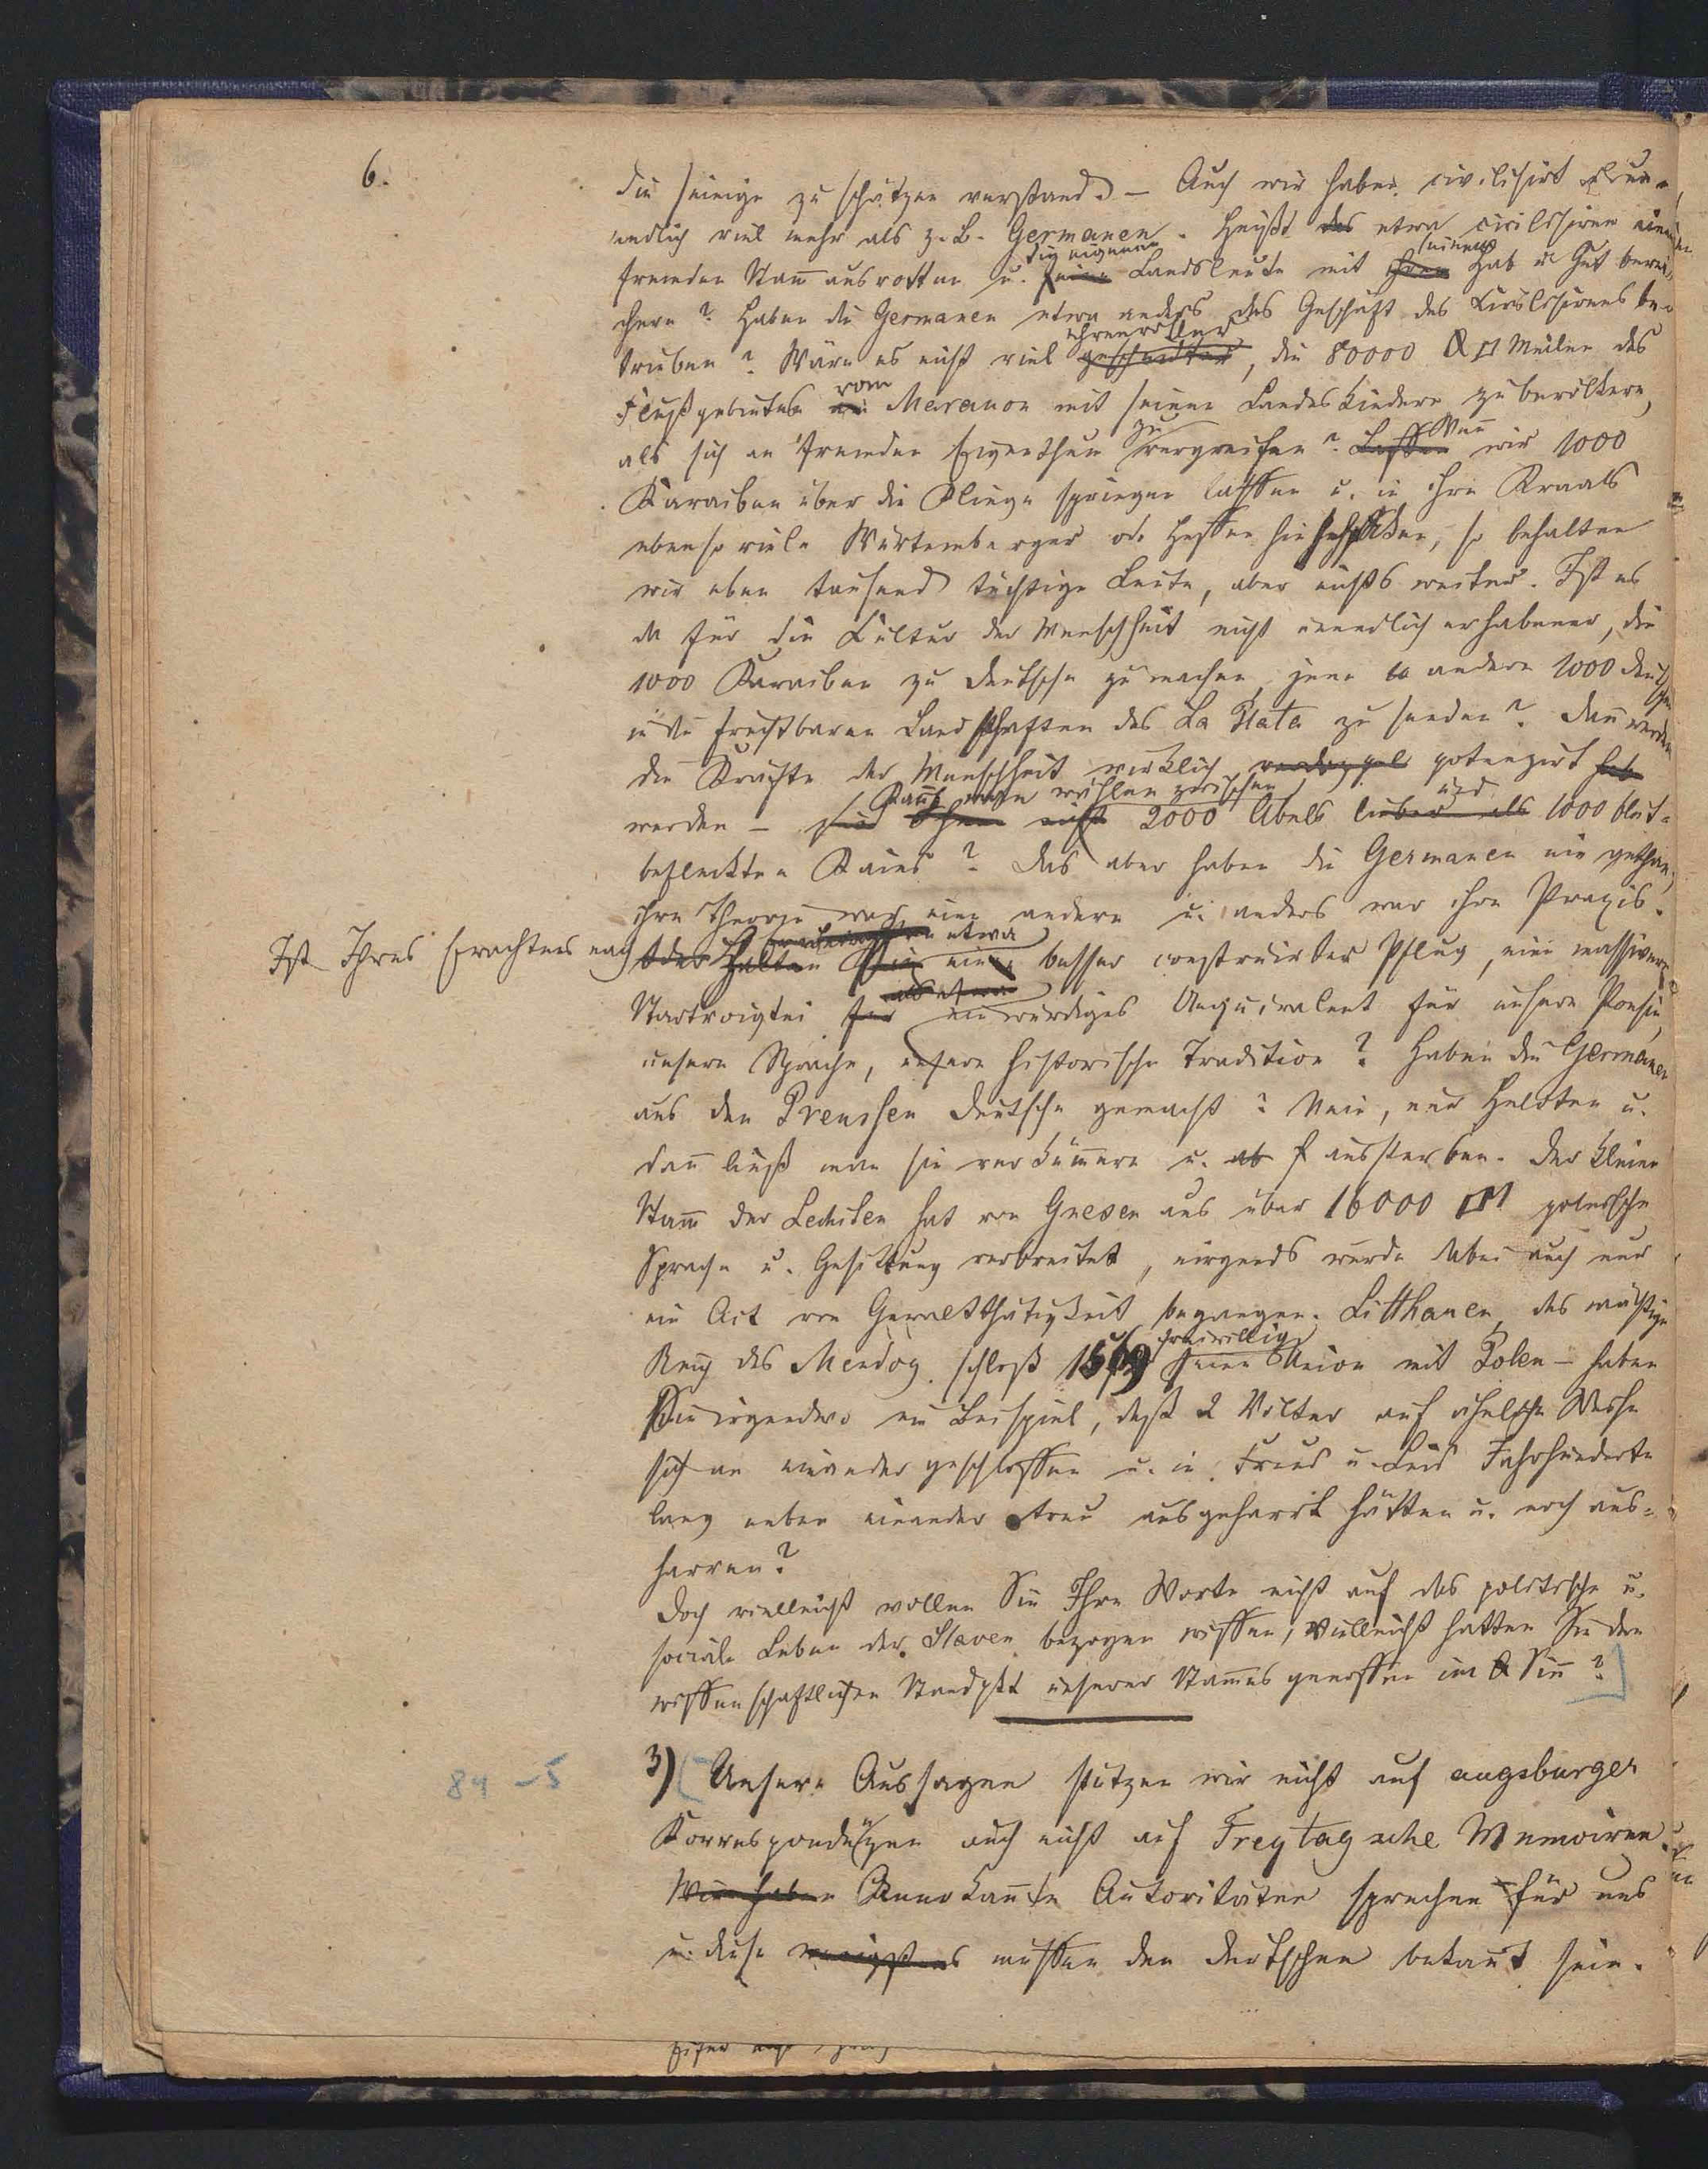 6.
die seinige zu schätzen verstand. — Auch wir haben civilisirt u. un-
endlich viel mehr als z. B. Germanen. Heißt das etwa civilisiren einen
fremden Stam̄ ausrotten u. die eigenen Landsleute mit seinem Hab u Gut berei-
chern? Haben die Germanen etwa anders das Geschäft des Civilisirens be-
trieben? Wäre es nicht viel ehrenvoller, die 80000 □ Meilen des
Flußgebietes vom Maranon mit seinen Landeskindern zu bevölkern,
als sich an fremden Eigenthum zu vergreifen? Wen̄ wir 1000
Karaiben über die Klinge springen lassen u. in ihre Kraals
ebenso viele Würtemberger od. Hessen hinschicken, so behalten
wir eben tausend tüchtige Leute, aber nichts weiter. Ist es
da für die Cultur der Menschheit nicht unendlich erhabener, die
1000 Karaiben zu Deutsche zu machen, jene andere 1000 Deutschen
in die fruchtbaren Landschaften des La Plata zu senden? Dan̄ werden
die Kräfte der Menschheit wirklich verdoppel potenzirt
werden — Kan̄ man wählen zwischen 2000 Abels und 1000 blut-
befleckten Kains? Das aber haben die Germanen nie gethan,
ihre Theorie war eine andere u. anders war ihre Praxis.
Ist Ihres Erachtens nach etwa ein besser construirter Pflug, eine massivere
Stadtvoigtei ein würdiges Aequivalent für unsere Poesie,
unsere Sprache, unsere historische Tradition? Haben die Germanen
aus den Preussen Deutsche gemacht? Nein, nur Heloten u.
dan̄ ließ man sie verkümmern u. aussterben. Der kleine
Stam̄ der Lechiten hat von Gnesen aus über 16000 □M polnische
Sprache u. Gesittung verbreitet, nirgends wurde dabei auch nur
ein Act von Gewaltthätigkeit begangen. Litthauen, das mächtige
Reich des Mendog schloß 1569 freiwillig seine Union mit Polen — haben
Sie irgendwo ein Beispiel, daß 2 Völker auf ähnliche Weise
sich an einander geschlossen u. in Freud u. Leid Jahrhunderte
lang neben einander treu ausgeharrt hätten u. noch aus-
harren?
Doch vielleicht wollen Sie Ihre Worte nicht auf das politische u.
sociale Leben der Slaven bezogen wissen, vielleicht hatten Sie den
wissenschaftlichen Standpkt unserer Stam̄esgenossen im Sin̄?
84 – 5
3) Unsere Aussagen stützen wir nicht auf augsburger
Korrespondenzen auch nicht auf Freytagsche Memoiren.
Wir haben Anerkan̄te Autoritäten sprechen für uns
u. diese wenigstens müssen den Deutschen bekan̄t sein.